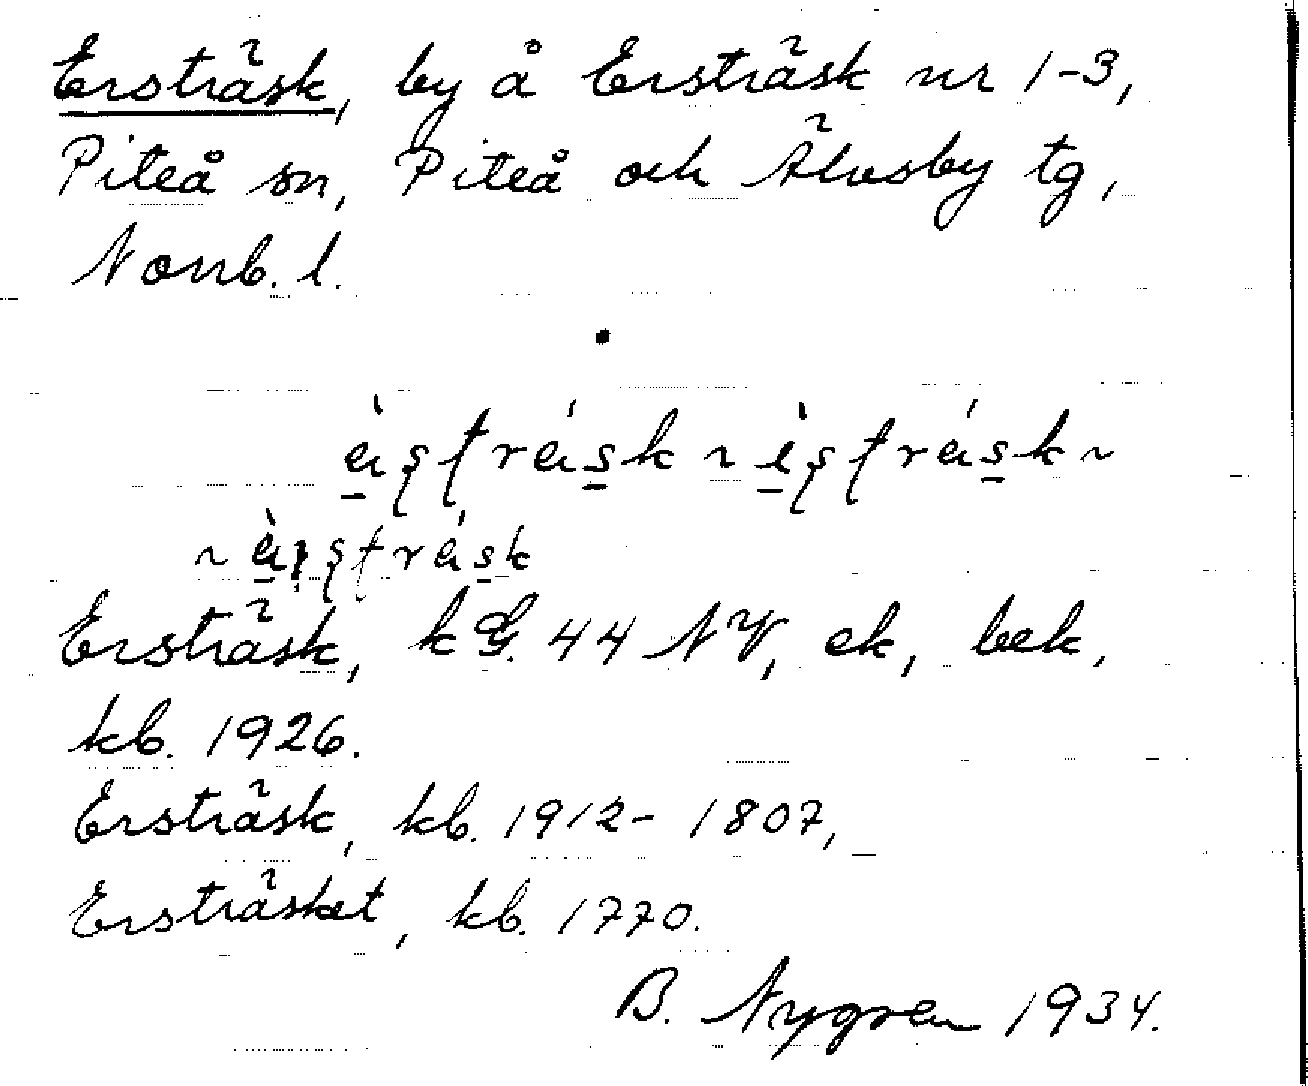 Ersträsk, by å Ersträsk nr 1-3,
Piteå sn, Piteå och Älvsby tg,
Norrb. l.
Ersträsk, kG. 44 NV, ek, bek,
kb. 1926.
Ersträsk, kb. 1912- 1807,
Ersträsket, kb. 1770.
B. Nygren 1934.